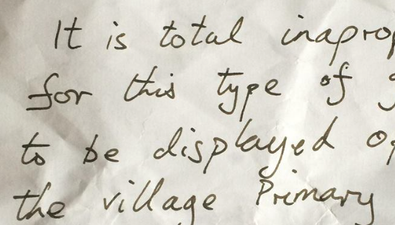 It is total inaprop
for this type of
to be displayed op
the village Primary